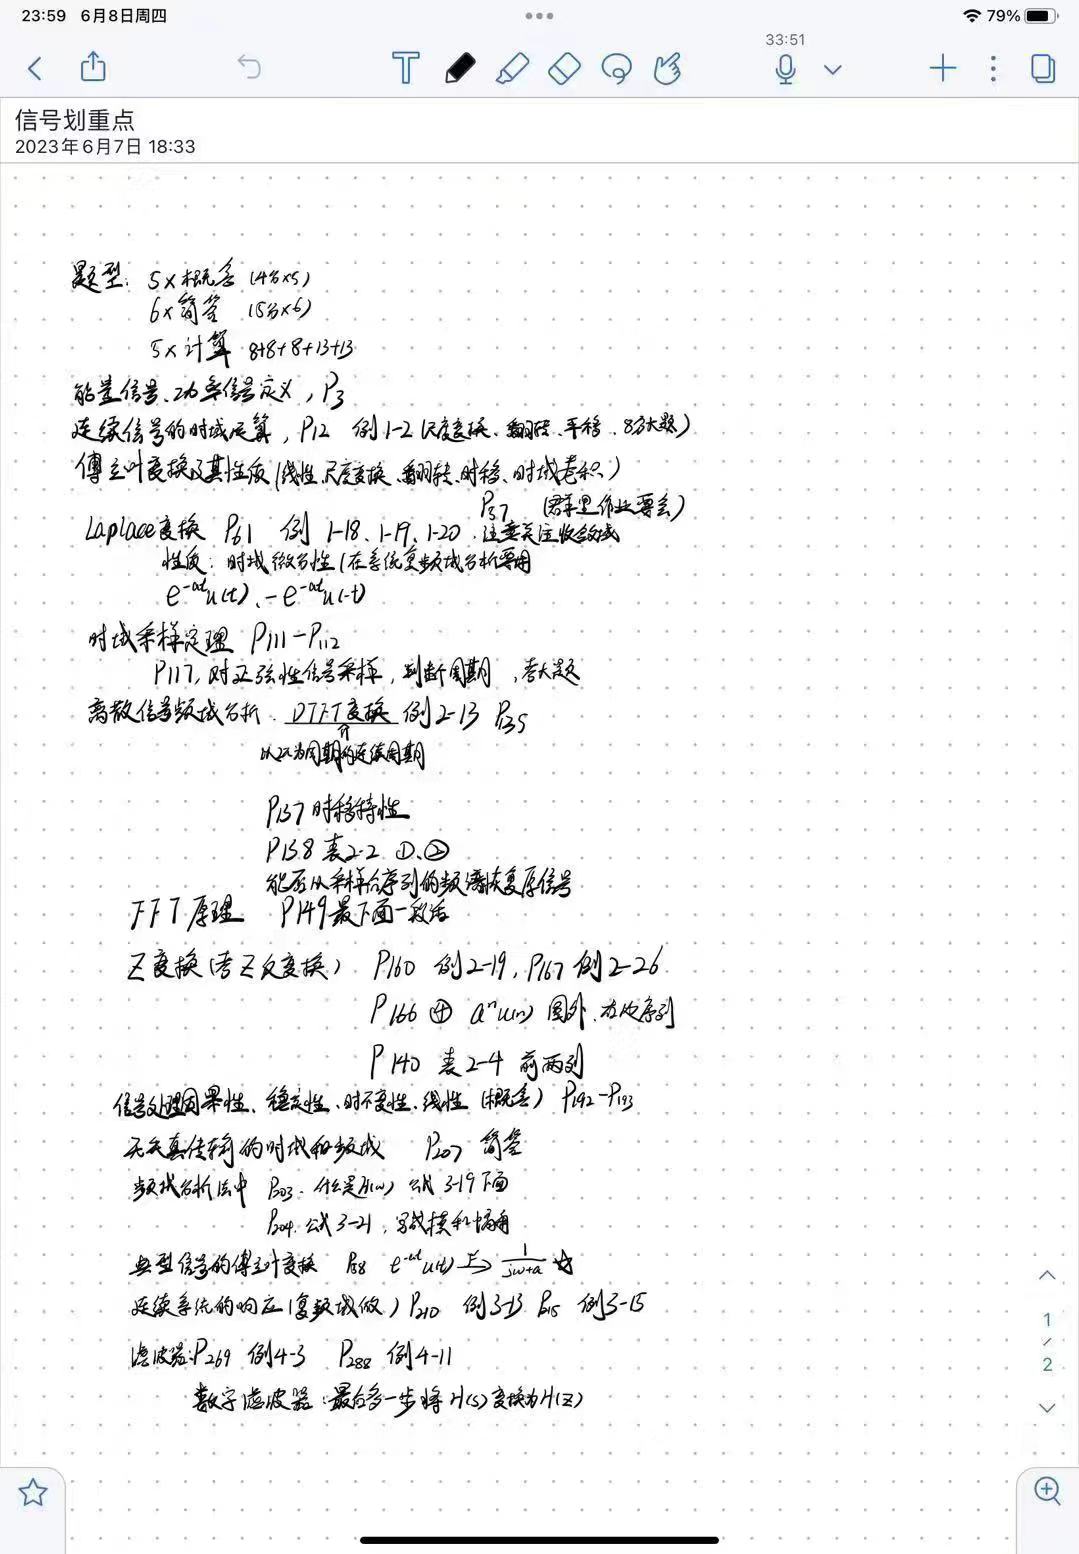 23:59 6月8日周四
79%
33:51
信号划重点
2023年6月7日 18:33
题型: 5×概念 (4分×5)
6×简答 (5分×6)
5×计算 8+8+8+13+13
能量信号、功率信号定义, P3
连续信号的时域运算, P12 例1-2 (尺度变换、翻转、平移、8分大题)
傅立叶变换及其性质 (线性、尺度变换、翻转、时移、时域卷积)
P37 (群里作业要会)
Laplace变换 P61 例 1-18、1-19、1-20. 注意关注收敛域
性质: 时域微分性 (在系统复频域分析要用
e^-at u(t)、-e^-at u(-t)
时域采样定理 P111-P112
P117, 对正弦性信号采样, 判断周期, 考大题
离散信号频域分析. DTFT变换 例2-13 P135
以2π为周期的连续周期
P137 时移特性
P138 表2-2 ①、②
能否从采样后序列的频谱恢复原信号
FFT原理 P149最下面一段话
Z变换 (考Z反变换) P160 例2-19, P167 例2-26
P166 ④ aⁿu(n) 圆外、右边序列
P140 表2-4 前两列
信号处理因果性、稳定性、时不变性、线性 (概念) P192-P193
无失真传输的时域和频域 P207 简答
频域分析法中 P203. 什么是H(ω) 公式 3-19下面
P204. 公式3-21, 写成模和幅角
典型信号的傅立叶变换 P38 e^-at u(t) → 1/(jω+a) ☆
连续系统的响应 (复频域做) P210 例3-13 P215 例3-15
滤波器: P269 例4-3 P288 例4-11
数字滤波器: 最后多一步将H(s)变换为H(z)
1
/
2